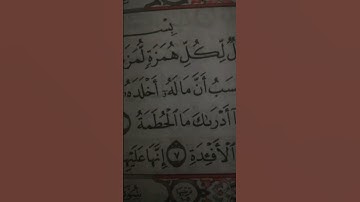 بِسۡ
لٌ لِّكُلِّ هُمَزَةٍ لُّمَزَ
سَبُ أَنَّ مَالَهُۥٓ أَخۡلَدَهُ
آ أَدۡرَىٰكَ مَا ٱلۡحُطَمَةُ
ٱلۡأَفۡـِٔدَةِ ٧ إِنَّهَا عَلَيۡهِ